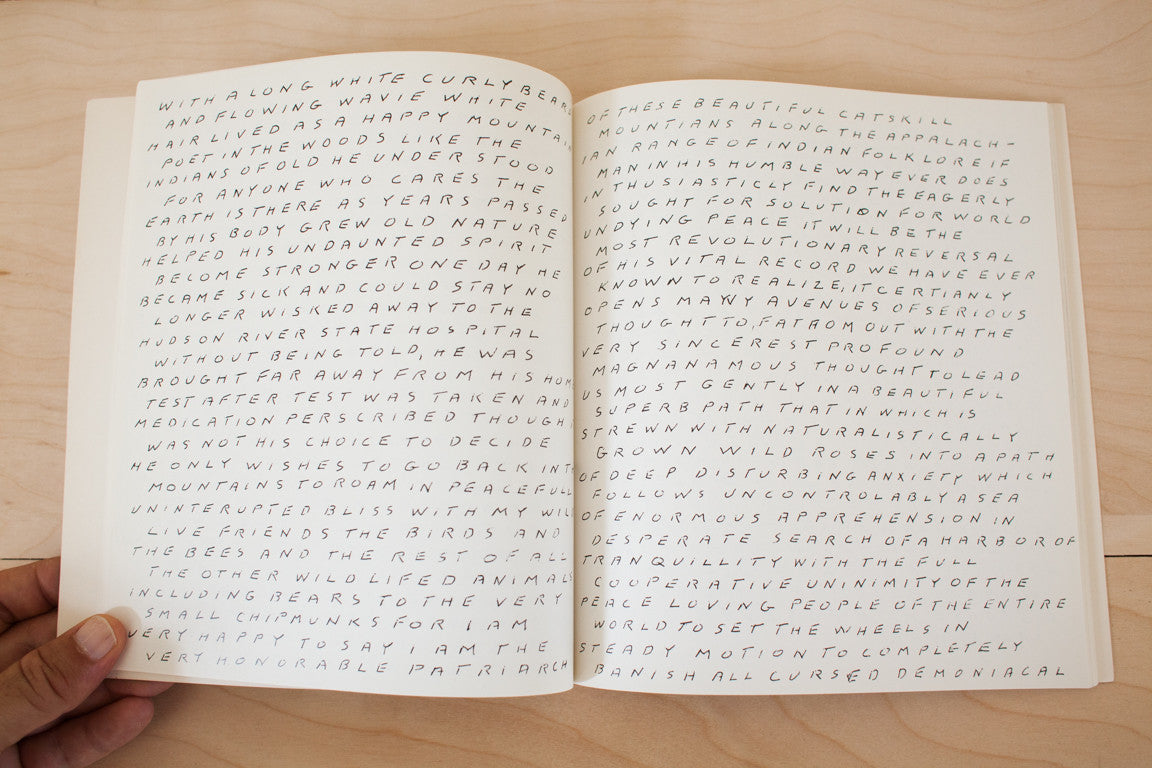 WITH A LONG WHITE CURLY BEARD
AND FLOWING WAVIE WHITE
HAIR LIVED AS A HAPPY MOUNTAIN
POET IN THE WOODS LIKE THE
INDIANS OF OLD HE UNDERSTOOD
FOR ANYONE WHO CARES THE
EARTH IS THERE AS YEARS PASSED
BY HIS BODY GREW OLD NATURE
HELPED HIS UNDAUNTED SPIRIT
BECOME STRONGER ONE DAY HE
BECAME SICK AND COULD STAY NO
LONGER WISKED AWAY TO THE
HUDSON RIVER STATE HOSPITAL
WITHOUT BEING TOLD, HE WAS
BROUGHT FAR AWAY FROM HIS HOME
TEST AFTER TEST WAS TAKEN AND
MEDICATION PERSCRIBED THOUGH
WAS NOT HIS CHOICE TO DECIDE
HE ONLY WISHES TO GO BACK INTO
MOUNTAINS TO ROAM IN PEACEFULL
UNINTERUPTED BLISS WITH MY WILD
LIVE FRIENDS THE BIRDS AND
THE BEES AND THE REST OF ALL
THE OTHER WILD LIFED ANIMALS
INCLUDING BEARS TO THE VERY
SMALL CHIPMUNKS FOR I AM
VERY HAPPY TO SAY I AM THE
VERY HONORABLE PATRIARCH
OF THESE BEAUTIFUL CATSKILL
MOUNTIANS ALONG THE APPALACH-
IAN RANGE OF INDIAN FOLKLORE IF
MAN IN HIS HUMBLE WAY EVER DOES
INTHUSIASTICLY FIND THE EAGERLY
SOUGHT FOR SOLUTION FOR WORLD
UNDYING PEACE IT WILL BE THE
MOST REVOLUTIONARY REVERSAL
OF HIS VITAL RECORD WE HAVE EVER
KNOWN TO REALIZE, IT CERTIANLY
OPENS MANY AVENUES OF SERIOUS
THOUGHT TO, FATAOM OUT WITH THE
VERY SINCEREST PROFOUND
MAGNANAMOUS THOUGHT TO LEAD
US MOST GENTLY IN A BEAUTIFUL
SUPERB PATH THAT IN WHICH IS
STREWN WITH NATURALISTICALLY
GROWN WILD ROSES INTO A PATH
OF DEEP DISTURBING ANXIETY WHICH
FOLLOWS UNCONTROLABLY A SEA
OF ENORMOUS APPREHENSION IN
DESPERATE SEARCH OF A HARBOR OF
TRANQUILLITY WITH THE FULL
COOPERATIVE UNINIMITY OF THE
PEACE LOVING PEOPLE OF THE ENTIRE
WORLD TO SET THE WHEELS IN
STEADY MOTION TO COMPLETELY
BANISH ALL CURSED DEMONIACAL